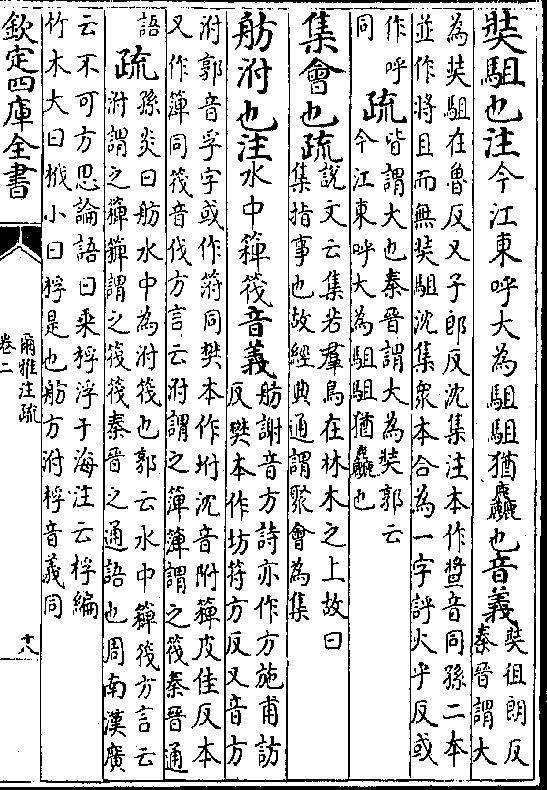 奘駔也注今江東呼大為駔駔猶麤也音義奘徂朗反秦晉謂大
為奘駔在魯反又子郎反沈集注本作㢡音同孫二本
並作將且而無奘駔沈集衆本合為一字評火乎反或
作呼疏皆謂大也秦晉謂大為奘郭云
同今江東呼大為駔駔猶麤也
集會也疏説文云集若羣鳥在林木之上故曰集指事也故經典通謂聚會為集
舫泭也注水中䉬筏音義舫謝音方詩亦作方施甫訪反樊本作坊符方反又音方
泭郭音孚字或作𥬔同樊本作坿沈音附䉬皮佳反本
又作簰同筏音伐方言云泭謂之簰簰謂之筏秦晉通
語疏孫炎曰舫水中為泭筏也郭云水中䉬筏方言云
泭謂之䉬䉬謂之筏筏秦晉之通語也周南漢廣
云不可方思論語曰乘桴浮于海注云桴編
竹木大曰栰小曰桴是也舫方泭桴音義同
欽定四庫全書
爾雅注疏
卷二
十八